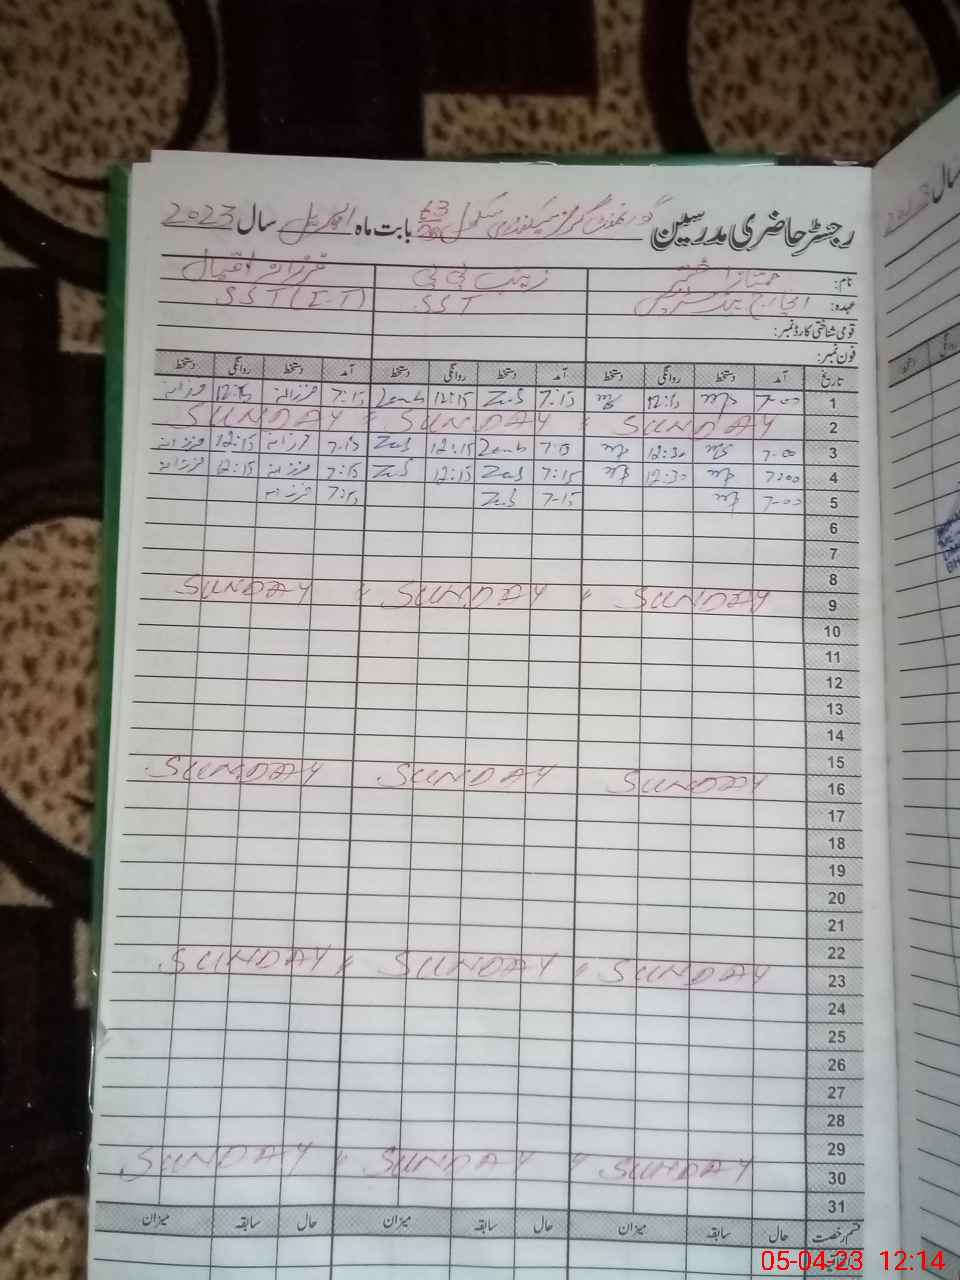 رجسٹر حاضری مدرسین گورنمنٹ گرلز سیکنڈری سکول 63 بابت ماہ اپریل سال 2023
نام: ممتاز اختر زینب بی بی فرزانہ اقبال
عہدہ: انچارج ہیڈ مسٹریس SST SST (I.T)
قومی شناختی کارڈ نمبر:
فون نمبر:
تاریخ آمد دستخط روانگی دستخط آمد دستخط روانگی دستخط آمد دستخط روانگی دستخط
1 7-00 7.15 Zaib 12:15 Zainb 7:15 فرزانہ فرزانہ
2 SUNDAY " SUNDAY " SUNDAY
3 7-00 12:30 Zainb 12:15 Zaib 7.15 فرزانہ 12:15 فرزانہ
4 7:00 12:30 7:15 Zaib 12:15 Zaib 7:15 فرزانہ 12:15 فرزانہ
5 7-00 7-15 Zaib 7:15 فرزانہ
6
7
8
9 SUNDAY " SUNDAY " SUNDAY
10
11
12
13
14
15
16 SUNDAY SUNDAY SUNDAY
17
18
19
20
21
22
23 SUNDAY " SUNDAY " SUNDAY
24
25
26
27
28
29
30 SUNDAY " SUNDAY " SUNDAY
31
قسم رخصت حال سابقہ میزان حال سابقہ میزان حال سابقہ میزان
05-04-23 12:14
سال 2023
روانگی دستخط